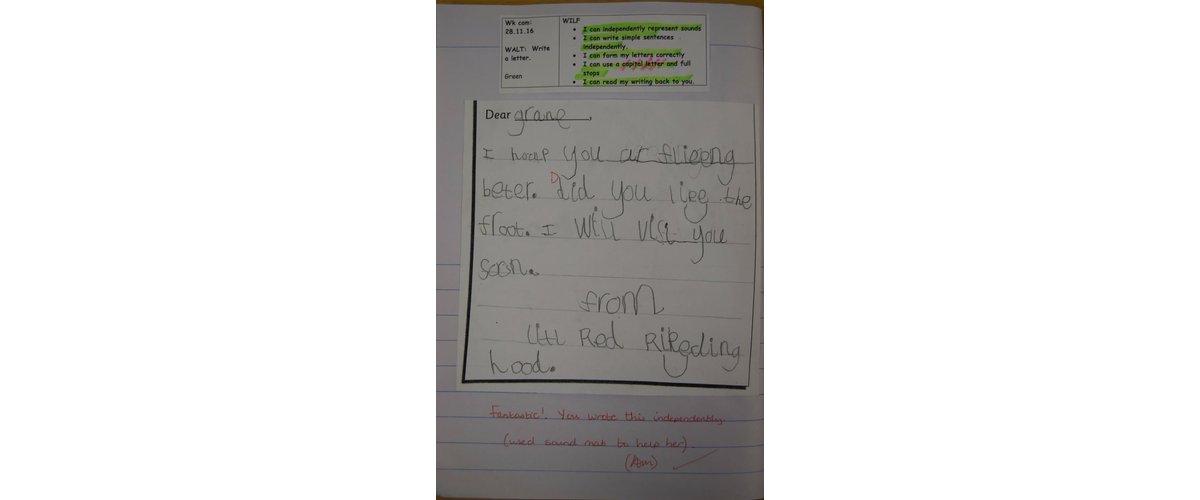 Wk com:
28.11.16
WALT: Write
a letter.
Green
WILF
• I can independently represent sounds
• I can write simple sentences
independently.
• I can form my letters correctly
• I can use a capital letter and full
stops
• I can read my writing back to you.
Dear grane,
I hoap you ar fliegng
beter. Did you lieg the
floot. I will visi you
soon.
from
litl Red Rikgding
hood.
Fantastic! You wrote this independently.
(used sound mat to help her)